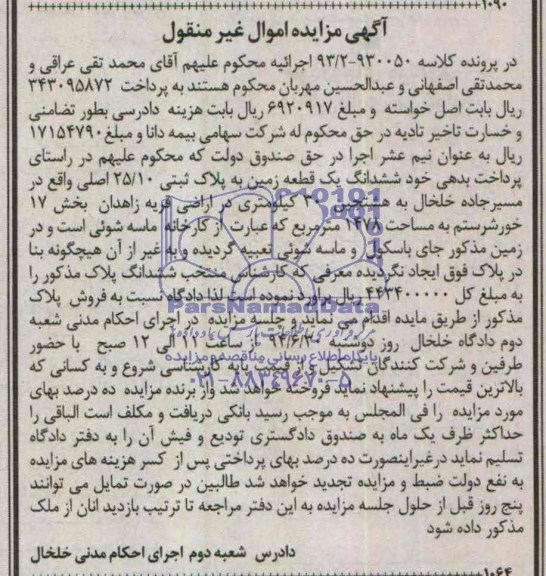 ۱۰۹۰
آگهی مزایده اموال غیر منقول
در پرونده کلاسه ۹۳۰۰۵۰-۹۳/۲ اجرائیه محکوم علیهم آقای محمد تقی عراقی و
محمدتقی اصفهانی و عبدالحسین مهربان محکوم هستند به پرداخت ۳۴۳۰۹۵۸۷۲
ریال بابت اصل خواسته و مبلغ ۶۹۲۰۹۱۷ ریال بابت هزینه دادرسی بطور تضامنی
و خسارت تاخیر تادیه در حق محکوم له شرکت سهامی بیمه دانا و مبلغ ۱۷۱۵۴۷۹۰
ریال به عنوان نیم عشر اجرا در حق صندوق دولت که محکوم علیهم در راستای
پرداخت بدهی خود ششدانگ یک قطعه زمین به پلاک ثبتی ۲۵/۱۰ اصلی واقع در
مسیرجاده خلخال به هشتجین ۳۰ کیلومتری در اراضی قریه زاهدان بخش ۱۷
خورشرستم به مساحت ۱۴۷۸ مترمربع که عبارت از کارخانه ماسه شوئی است و در
زمین مذکور جای باسکول و ماسه شوئی تعبیه گردیده و به غیر از آن هیچگونه بنا
در پلاک فوق ایجاد نگردیده معرفی که کارشناس منتخب ششدانگ پلاک مذکور را
به مبلغ کل ۴۴۳۴۰۰۰۰۰ ریال برآورد نموده است لذا دادگاه نسبت به فروش پلاک
ParsNamadData
مذکور از طریق مزایده اقدام می نماید و جلسه مزایده در اجرای احکام مدنی شعبه
دوم دادگاه خلخال روز دوشنبه ساعت ۱۱ الی ۱۲ صبح با حضور
پایگاه اطلاع رسانی مناقصه و مزایده
طرفین و شرکت کنندگان تشکیل و از قیمت پایه کارشناسی شروع و به کسانی که
۰۲۱-۸۸۳۴۹۶۷۰-۵
بالاترین قیمت را پیشنهاد نماید فروخته خواهد شد واز برنده مزایده ده درصد بهای
مورد مزایده را فی المجلس به موجب رسید بانکی دریافت و مکلف است الباقی را
حداکثر ظرف یک ماه به صندوق دادگستری تودیع و فیش آن را به دفتر دادگاه
تسلیم نماید درغیراینصورت ده درصد بهای پرداختی پس از کسر هزینه های مزایده
به نفع دولت ضبط و مزایده تجدید خواهد شد طالبین در صورت تمایل می توانند
پنج روز قبل از حلول جلسه مزایده به این دفتر مراجعه تا ترتیب بازدید انان از ملک
مذکور داده شود
دادرس شعبه دوم اجرای احکام مدنی خلخال
۱۰۶۴